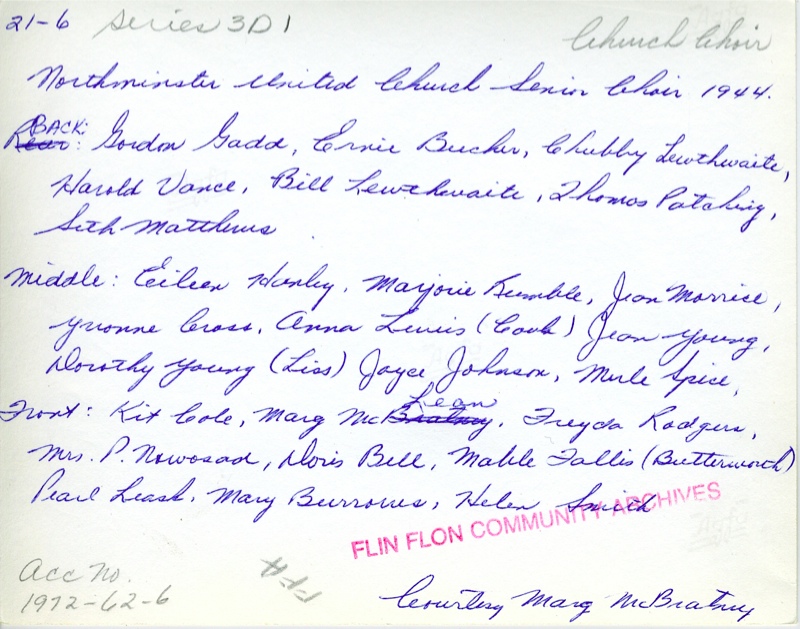 21-6 Series 3D1
Church Choir
Northminster United Church Senior Choir 1944.
Rear BACK: Gordon Gadd, Ernie Bucher, Chubby Lewthwaite,
Harold Vance, Bill Lewthwaite, Thomas Patching,
Seth Matthews
Middle: Eileen Hanley, Marjorie Rumble, Jean Morrise,
Yvonne Cross, Anna Lewis (Cook) Jean Young,
Dorothy Young (Liss) Joyce Johnson, Merle Spice,
Front: Kit Cole, Marg McBratney Lean, Freyda Rodgers,
Mrs. P. Nowosad, Doris Bell, Mable Fallis (Butterworth)
Pearl Leask, Mary Burrows, Helen Smith
FLIN FLON COMMUNITY ARCHIVES
FFA
Acc No.
1972-62-6
Courtesy Marg McBratney